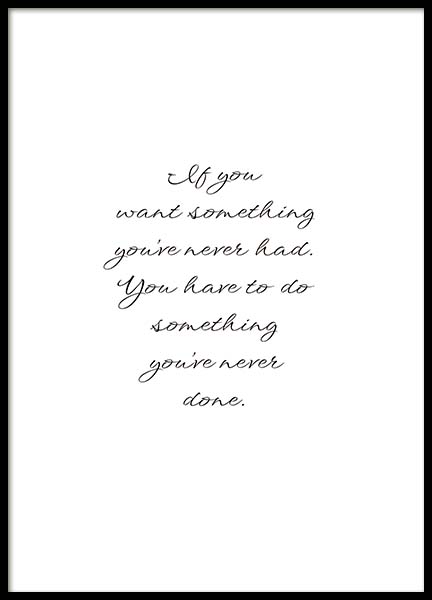 If you
want something
you've never had.
You have to do
something
you've never
done.